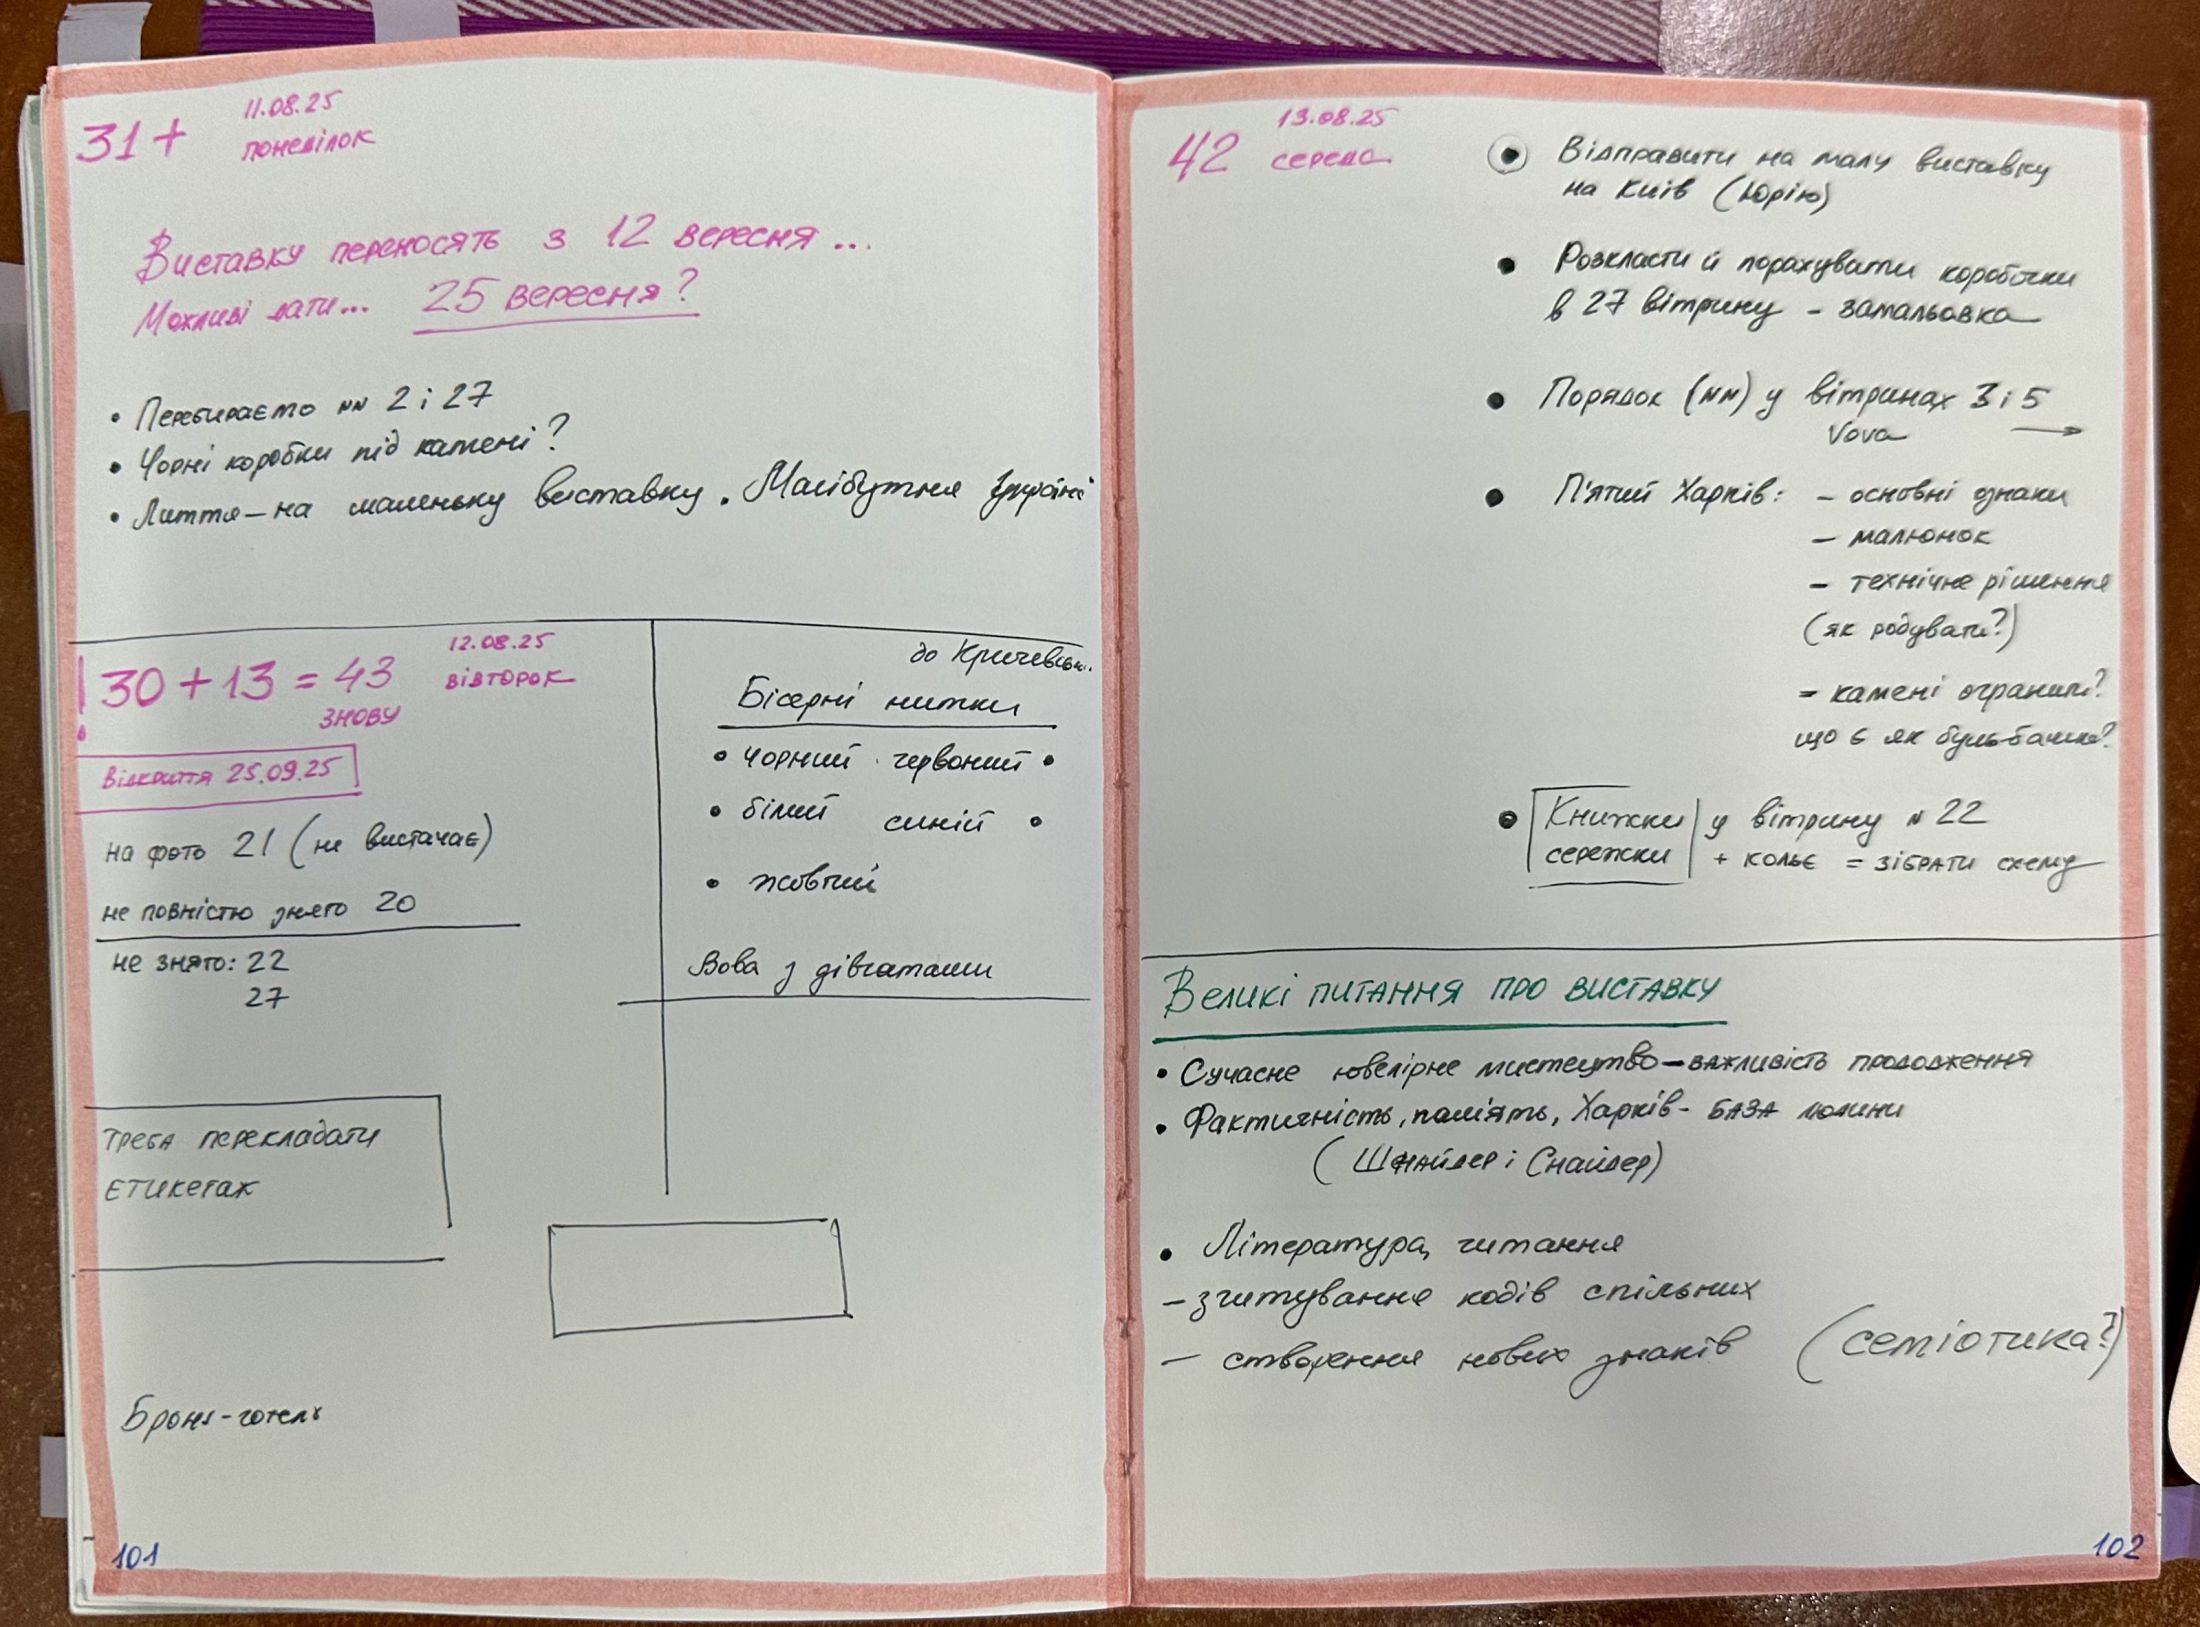 31+
11.08.25
понеділок
Виставку переносять з 12 вересня...
Можливі дати... 25 вересня?
• Перебираємо NN 2 і 27
• Чорні коробки під камені?
• Лиття – на маленьку виставку. Майбутня
! 30 + 13 = 43
знову
12.08.25
вівторок
Відкриття 25.09.25
на фото 21 (не вистачає)
не повністю знято 20
не знято: 22
27
до
Бісерні нитки
• чорний червоний •
• білий синій •
• жовтий
Вова з дівчатами
Треба перекладати
етикетаж
Броня - готель
101
42
13.08.25
середа
• Відправити на малу виставку
на Київ (Юрію)
• Розкласти й порахувати коробочки
в 27 вітрину – замальовка
• Порядок (NN) у вітринах 3 і 5
Vova →
• П'ятий Харків: – основні ознаки
– малюнок
– технічне рішення
(як робувати?)
– камені огранити?
що є як бульбашки?
• Книжки у вітрину N 22
сережки + кольє = зібрати схему
Великі питання про виставку
• Сучасне ювелірне мистецтво – важливість продовження
• Фактичність, пам'ять, Харків – база людини
(Шнайдер і Снайдер)
• Література, читання
– зчитування кодів спільних
– створення нових знаків (семіотика?)
102